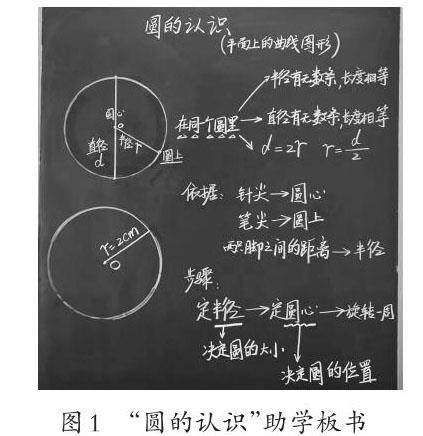 圆的认识
(平面上的曲线图形)
半径有无数条,长度相等
在同个圆里
直径有无数条,长度相等
d=2r r=d/2
圆心
O
半径r
直径
d
圆上
依据: 针尖→圆心
笔尖→圆上
两只脚之间的距离→半径
r=2cm
O
步骤:
定半径→定圆心→旋转一周
决定圆的大小
决定圆的位置
图1 “圆的认识”助学板书